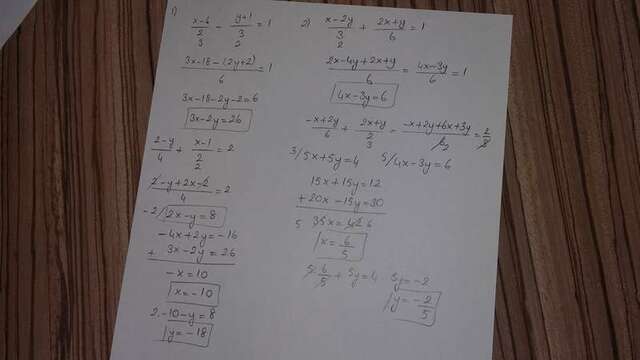 1)
x-6/2 - y+1/3 = 1
3x-18-(2y+2)/6 = 1
3x-18-2y-2=6
3x-2y=26
2-y/4 + x-1/2 = 2
2-y+2x-2/4 = 2
-2/2x-y=8
-4x+2y=-16
+ 3x-2y=26
-x=10
x=-10
2·-10-y=8
y=-18
2)
x-2y/3 + 2x+y/6 = 1
2x-4y+2x+y/6 = 4x-3y/6 = 1
4x-3y=6
-x+2y/6 + = -x+2y+6x+3y/6 = 2/3
3/5x+5y=4 5/4x-3y=6
15x+15y=12
+20x-15y=30
35x=42
x=6/5
5·6/5+5y=4 5y=-2
y=-2/5